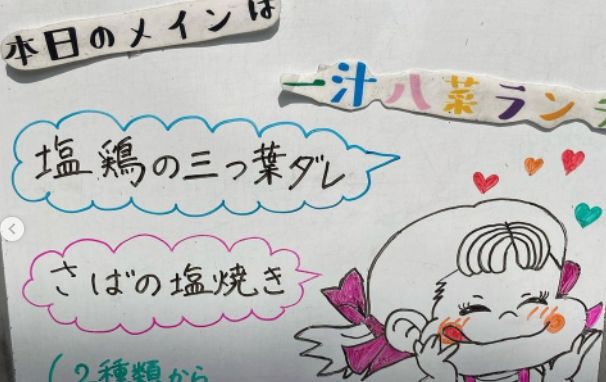 本日のメインは
一汁八菜ラン
塩鶏の三つ葉ダレ
さばの塩焼き
(2種類から